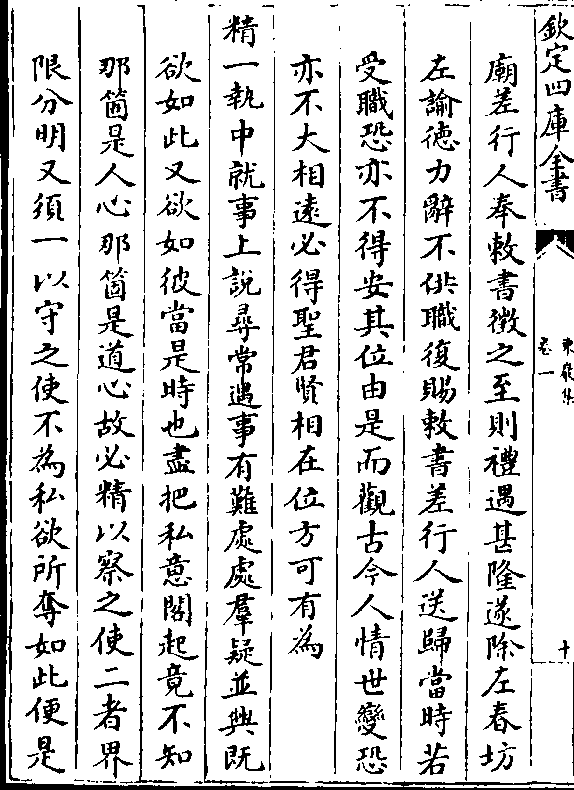 欽定四庫全書
卷一
十
廟差行人奉敕書徴之至則禮遇甚隆遂除左春坊
左諭徳力辭不供職復賜敕書差行人送歸當時若
受職恐亦不得安其位由是而觀古今人情世變恐
亦不大相逺必得聖君賢相在位方可有為
精一執中就事上説尋常遇事有難處處羣疑並興既
欲如此又欲如彼當是時也盡把私意閣起竟不知
那箇是人心那箇是道心故必精以察之使二者界
限分明又須一以守之使不為私欲所奪如此便是